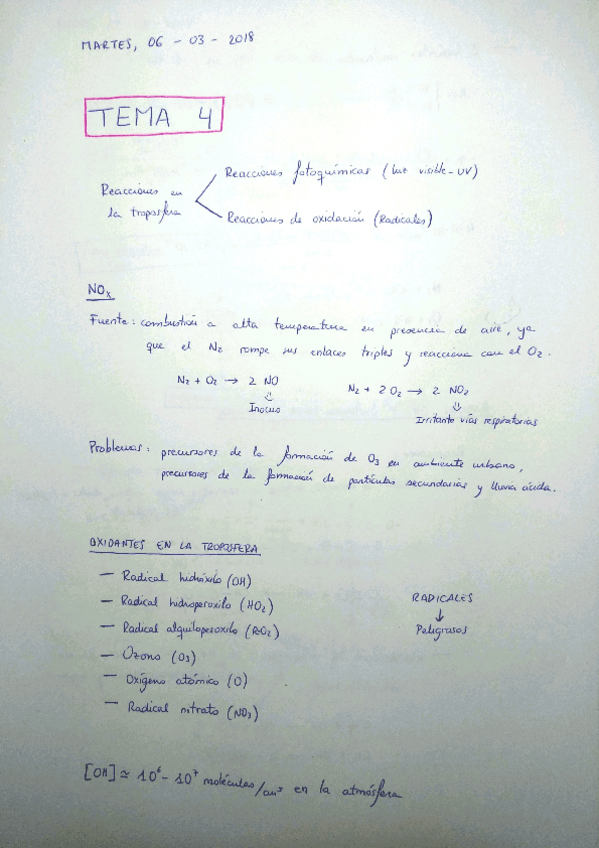 MARTES, 06 - 03 - 2018
TEMA 4
Reacciones fotoquímicas (luz visible - UV)
Reacciones en
la troposfera
Reacciones de oxidación (Radicales)
NOx
Fuente: combustión a alta temperatura en presencia de aire, ya
que el N2 rompe sus enlaces triples y reacciona con el O2.
N2 + O2 → 2 NO
N2 + 2 O2 → 2 NO2
Inocuo
Irritante vías respiratorias
Problemas: precursores de la formación de O3 en ambiente urbano,
precursores de la formación de partículas secundarias y lluvia ácida.
OXIDANTES EN LA TROPOSFERA
— Radical hidróxilo (OH)
— Radical hidroperoxilo (HO2)
— Radical alquiloperoxilo (RO2)
— Ozono (O3)
— Oxígeno atómico (O)
— Radical nitrato (NO3)
RADICALES
↓
Peligrosos
[OH] ≃ 10⁶ - 10⁷ moléculas/cm³ en la atmósfera